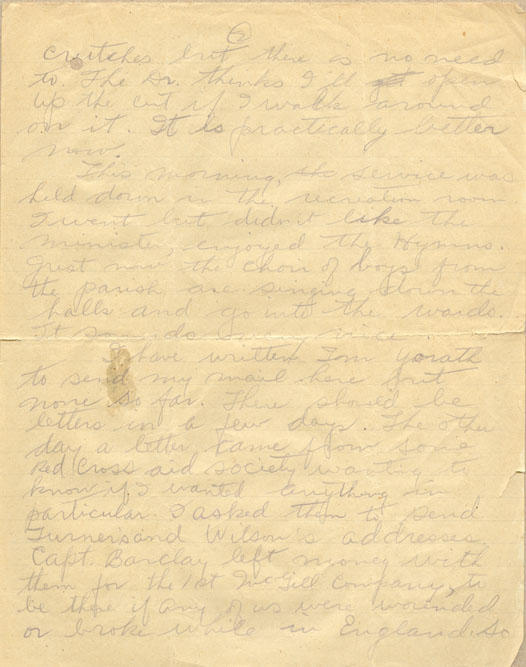 6
crutches but there is no need
to. The Dr. thinks I'll open
up the cut if I walk around
on it. It is practically better
now.
This morning, the service was
held down in the recreation room
I went but didn't like the
minister, enjoyed the Hymns.
Just now the choir of boys from
the parish are singing down the
halls and go into the wards.
It sounds
I have written Tom Yorath
to send my mail here but
none so far. There should be
letters in a few days. The other
day a letter came from some
Red Cross aid society wanting to
know if I wanted anything in
particular. I asked them to send
Turners and Wilson's addresses.
Capt. Barclay left money with
them for the 1st McGill Company, to
be there if any of us were wounded
or broke while in England. So